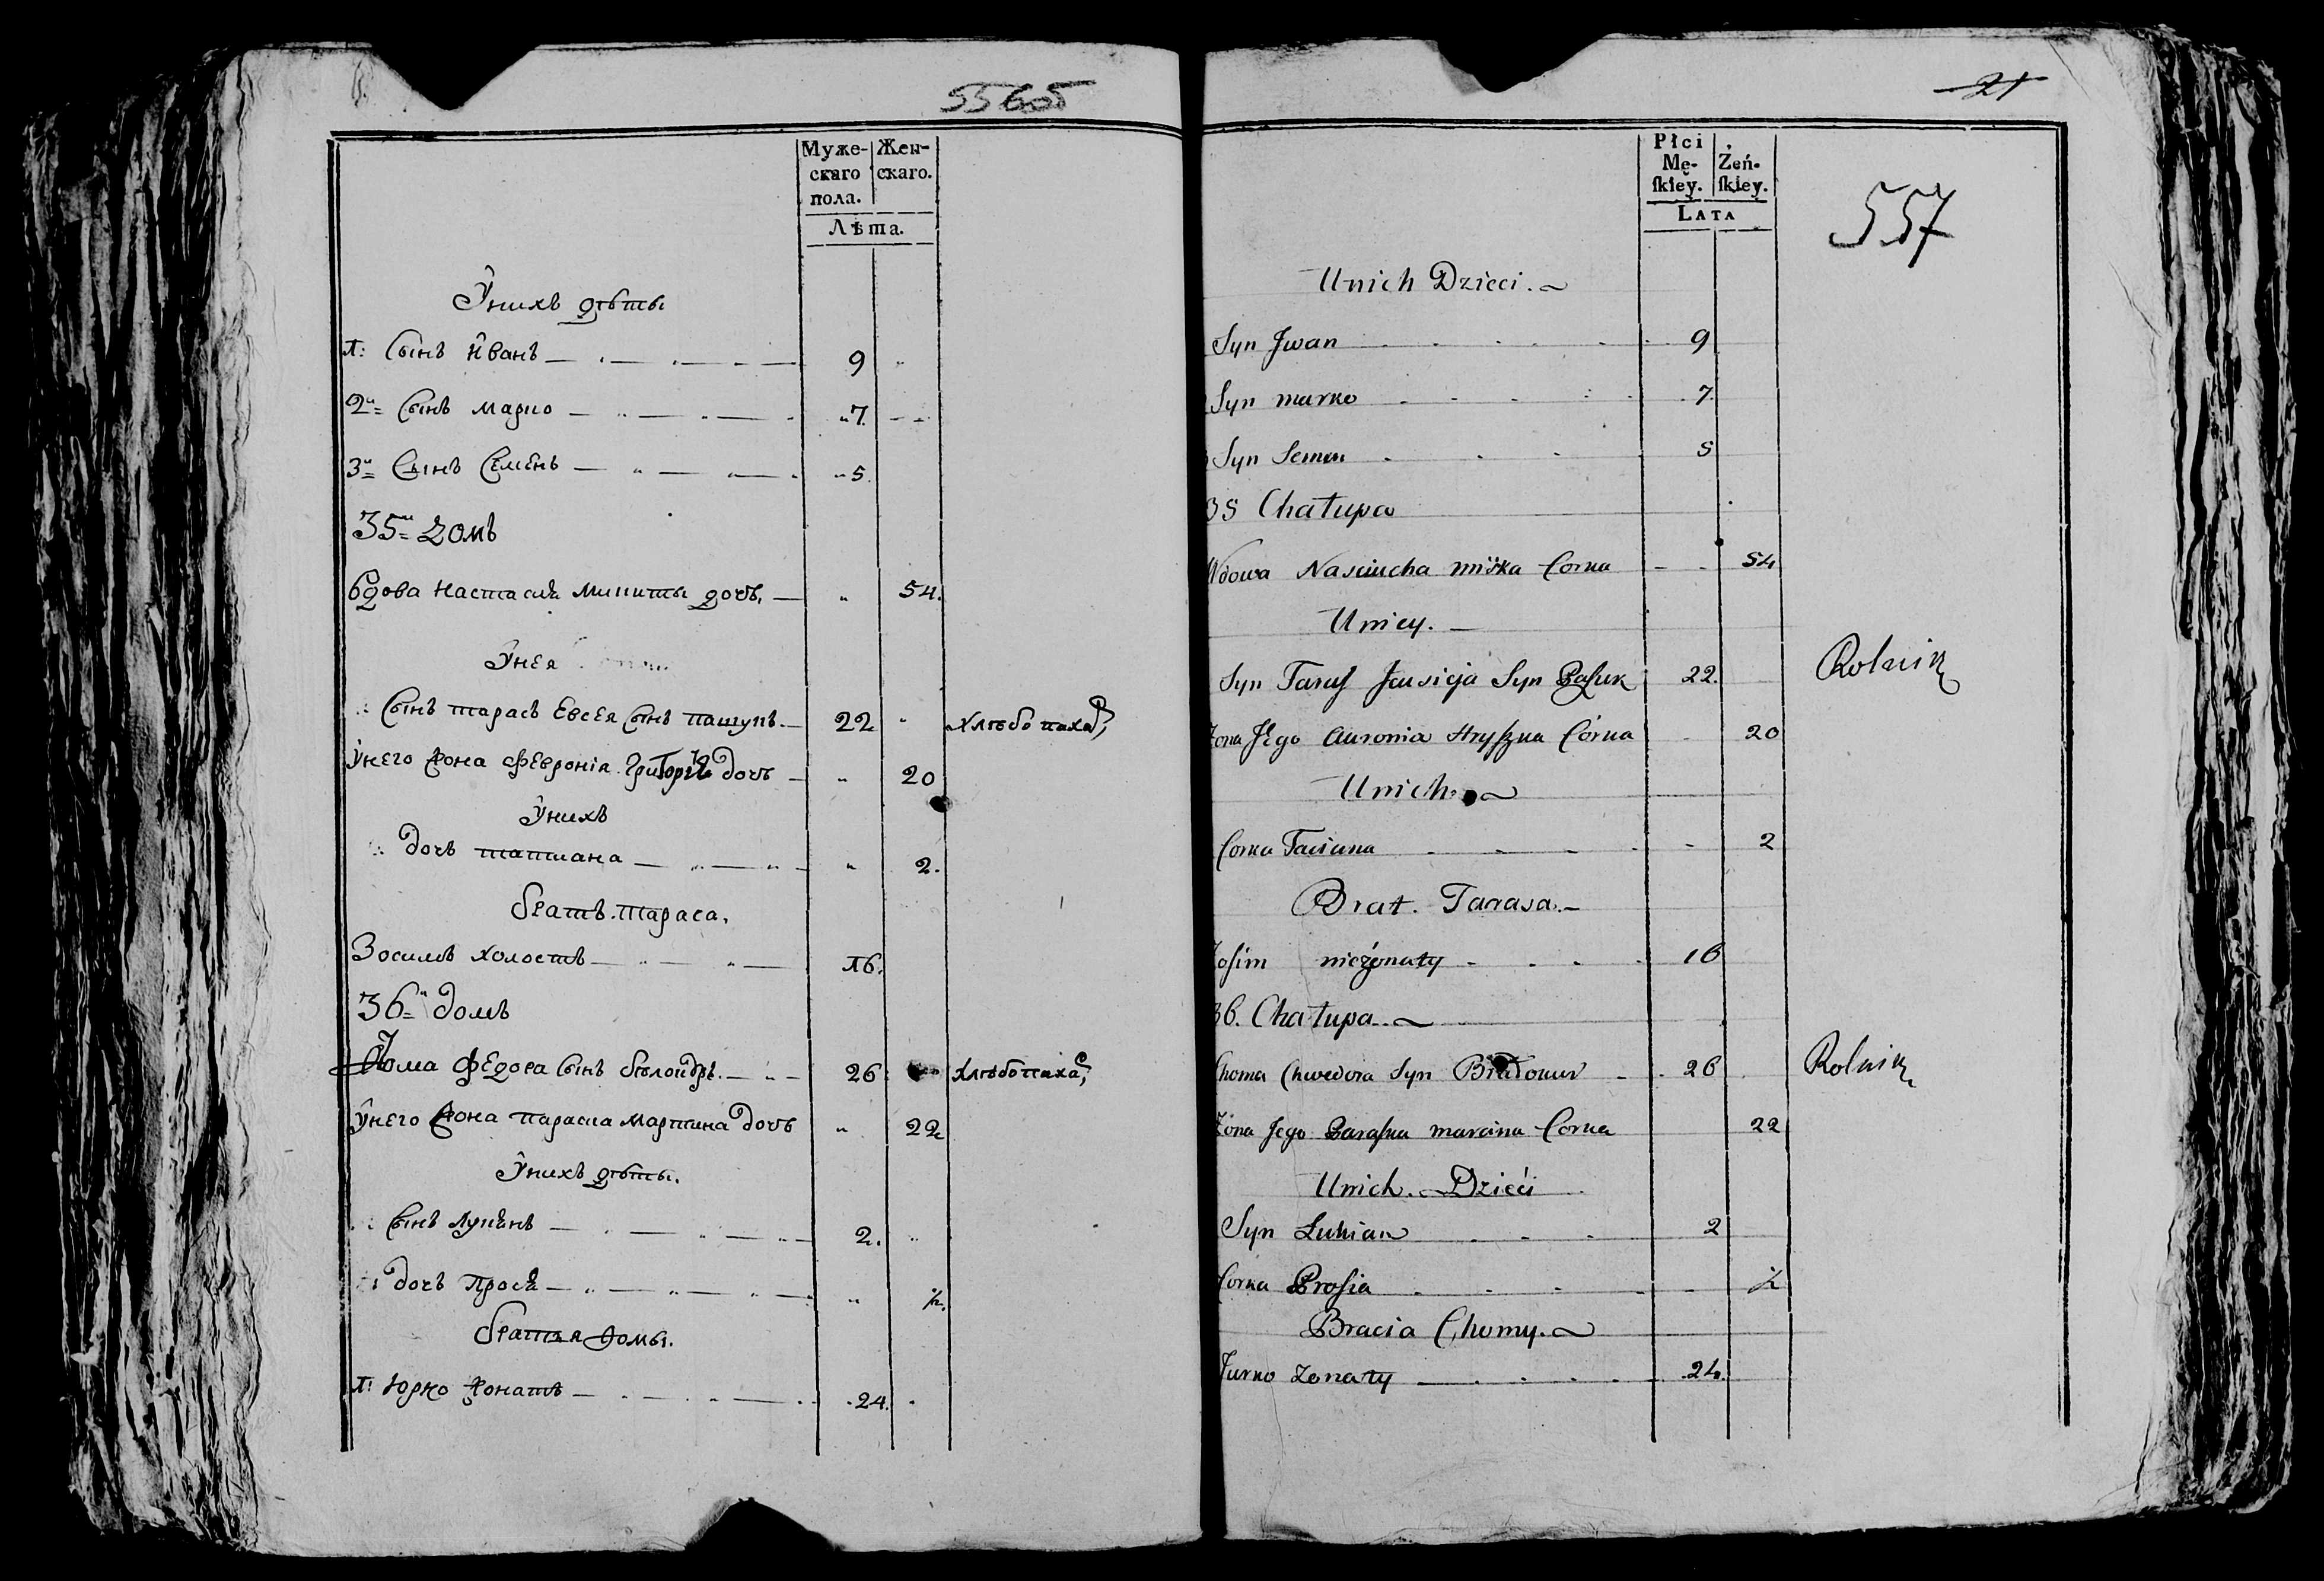 556об
Муже- Жен-
скаго скаго.
пола.
Лѣта.
Унихъ дѣты
1: Сынъ Иванъ 9
2й Сынъ Марко 7.
3й Сынъ Семенъ 5.
35й домъ
Вдова Настасия Микиты дочь. 54.
Унея
Сынъ тарасъ Евсея Сынъ пашукъ. 22 хлѣбопахар,
Унего Жона Февронія Григорія дочь 20
Унихъ
дочь татиана 2.
братъ. тараса.
Зосимъ холостъ 16.
36й домъ
Фома Федора Сынъ 26 хлѣбопаха,
Унего Жона параска Мартина дочь 22
Унихъ дѣты.
Сынъ Лукянъ 2.
дочь прося ½.
братья Фомы.
1: Юрко Жонатъ 24.
21
Płci
Mę- Żeń-
ſkiey. ſkiey.
LATA
557
Unich Dzieci.
Syn Jwan 9
Syn marko 7
Syn Semen 5
35 Chałupa
Wdowa Nasciucha mitka Corka 54
Uniey.
Syn Taraſ Jausieja Syn Paſuk 22. Rolnik
Zona Jego Auronia Hryſzka Córka 20
Unich
Corka Taciana 2
Brat. Tarasa.
Zoſim nieżonaty 16
36. Chałupa.
Choma Chwedora Syn 26 Rolnik
Żona Jego Paraſka marcina Corka 22
Unich. Dzieći
Syn Lukian 2
Corka Proſia ½
Bracia Chomy.
Jurko Zonaty 24.